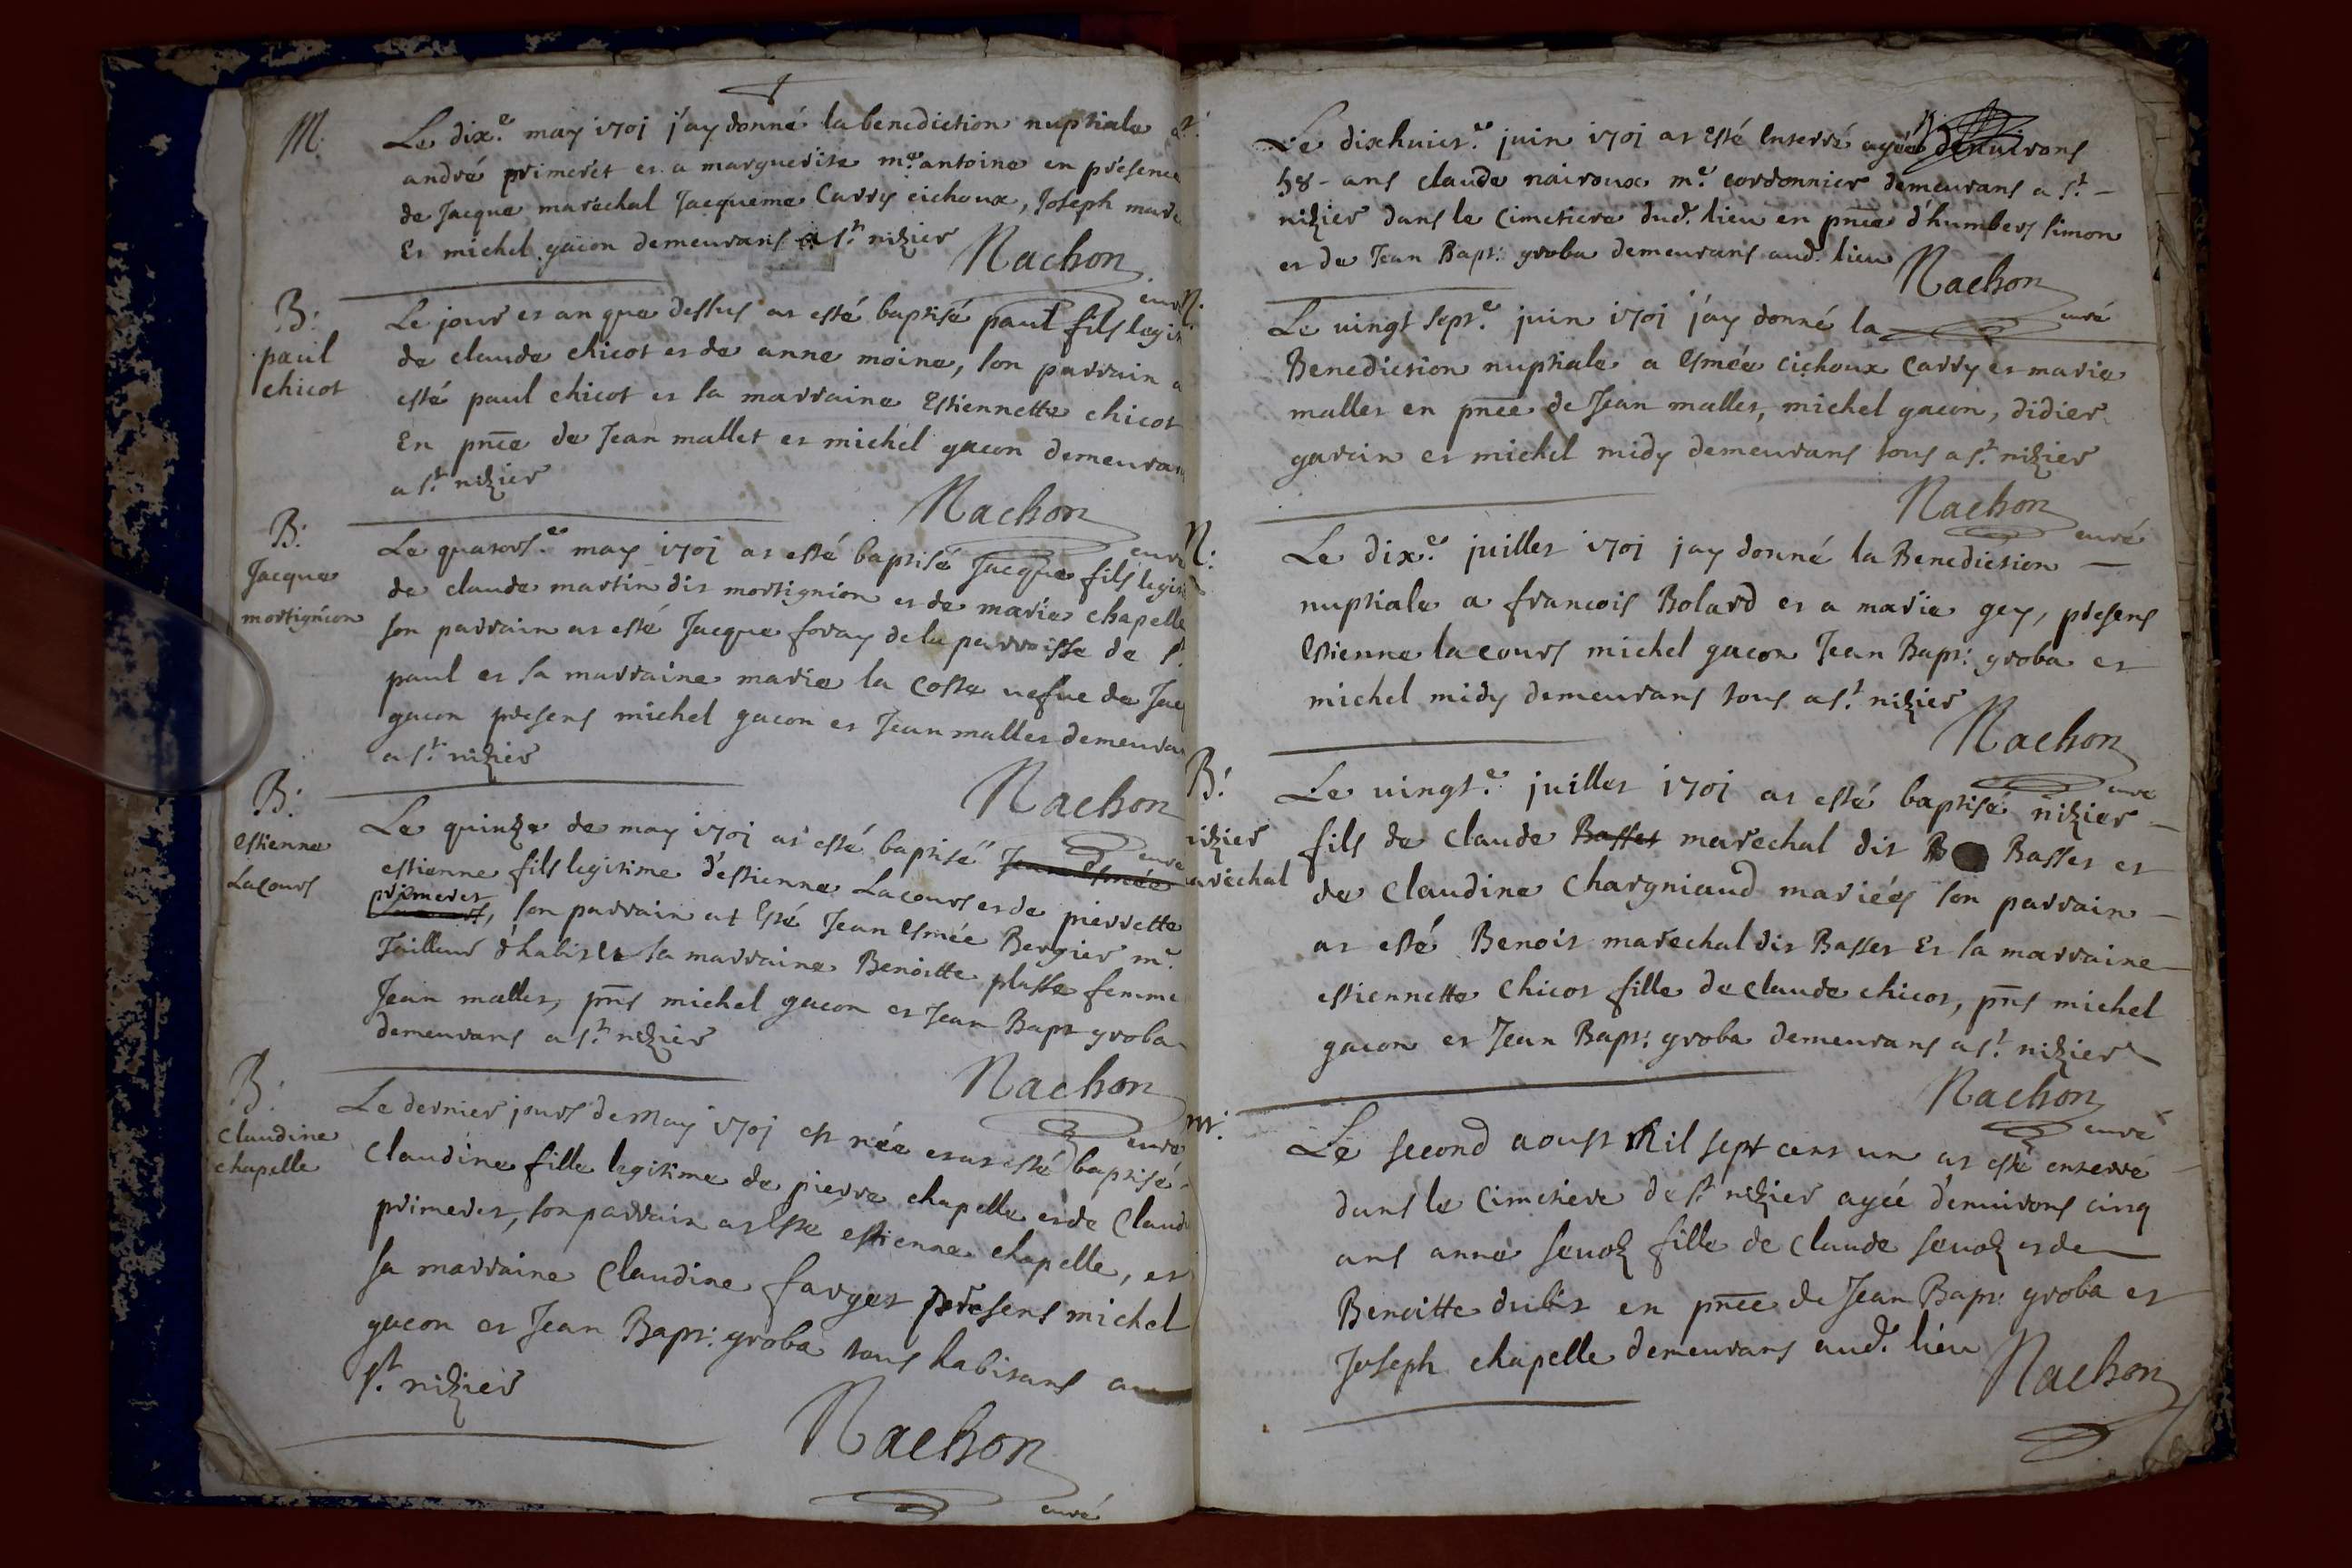 M.
Le dix.e may 1701 j'ay donné la benediction nuptiale
andré primeret et a marguerite m.e antoine en presence
de Jacque maréchal Jacqueme Carry cichoux, Joseph mare
Et michel gacon demeurans a s.t nizier
Nachon
curé
B:
paul
chicot
Le jour et an que dessus at esté baptisé paul fils legit
de claude chicot et de anne moine, son parrain a
esté paul chicot et sa marraine Estiennette chicot
En pnce de Jean mallet et michel gacon demeuran
a s.t nizier
Nachon
curé
B:
Jacque
mortignion
Le quators.e may 1701 at esté baptisé Jacque fils legit
de claude martin dit mortignion et de marie chapelle
son parrain at esté Jacque foray de la parroisse de s.t
paul et sa marraine marie la coste vefue de Jac
gacon presens michel gacon et Jean mallet demeura
a s.t nizier
Nachon
curé
B:
estienne
Lacours
Le quinze de may 1701 at esté baptisé Jean Esmée
estienne fils legitime d'estienne Lacours et de pierrette
primeret, son parrain at Esté Jean Esmée Bergier m.e
Tailleur d'habit et sa marraine Benoitte plasse femme
Jean mallet, pns michel gacon et Jean Bapt groba
demeurans a s.t nizier
Nachon
curé
B:
claudine
chapelle
Le dernier jours de May 1701 est née et at esté baptisé
Claudine fille legitime de pierre chapelle et de Claud
primeret, son parrain at Esté estienne chapelle, et
sa marraine Claudine farget presens michel
gacon et Jean Bapt: groba tous habitans au
s.t nizier
Nachon
curé
Le dixhuict.e juin 1701 at Esté Enterré agée d'enuirons
58 - ans claude nairoux m.e cordonnier demeurans a s.t -
nizier dans le Cimetiere dud. lieu en pnce d'humbert simon
et de Jean Bapt: groba demeurans aud. lieu
Nachon
curé
Le uingt sept.e juin 1701 j'ay donné la
Benediction nuptiale a Esmée cichoux Carry et marie
mallet en pnce de Jean mallet, michel gacon, didier
garcin et michel midy demeurans tous a s.t nizier
Nachon
curé
Le dix.e juillet 1701 jay donné la Benediction -
nuptiale a francois Bolard et a marie gey, presens
Estienne lacours michel gacon Jean Bapt: groba et
michel midy demeurans tous a s.t nizier
Nachon
curé
B:
nizier
arechal
Le uingt.e juillet 1701 at esté baptisé nizier -
fils de Claude Basset marechal dit Basset et
de Claudine Chargniaud mariés son parrain -
at esté Benoit marechal dit Basset Et sa marraine
estiennette Chicot fille de claude chicot, pns michel
gacon et Jean Bapt: groba demeurans a s.t nizier
Nachon
curé
m:
Le second aoust Mil sept cent un at esté enterré
dans le Cimetiere de s.t nizier agée d'enuirons cinq
ans anne seuoz fille de claude seuoz et de
Benoitte dubit en pnce de Jean Bapt: groba et
Joseph chapelle demeurans aud. lieu
Nachon